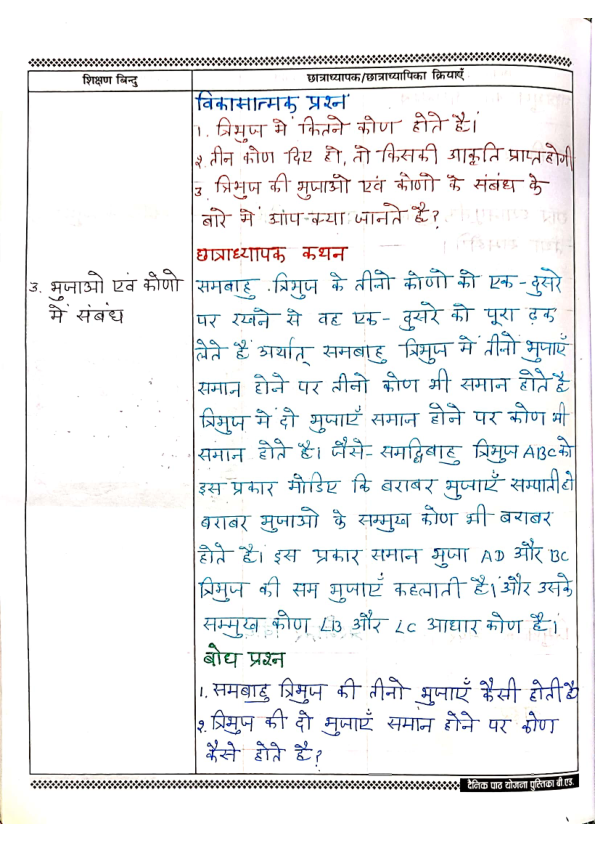 शिक्षण बिन्दु
छात्राध्यापक/छात्राध्यापिका क्रियाएँ
विकासात्मक प्रश्न
1. त्रिभुज में कितने कोण होते है।
2. तीन कोण दिए हो, तो किसकी आकृति प्राप्त होगी
3. त्रिभुज की भुजाओ एवं कोणो के संबंध के
बारे में आप क्या जानते है?
छात्राध्यापक कथन
3. भुजाओ एवं कोणो
में संबंध
समबाहु त्रिभुज के तीनो कोणो को एक-दुसरे
पर रखने से वह एक-दुसरे को पूरा ढ़क
लेते हैं अर्थात् समबाहु त्रिभुज में तीनों भुजाएँ
समान होने पर तीनो कोण भी समान होते है
त्रिभुज में दो भुजाएँ समान होने पर कोण भी
समान होते है। जैसे- समद्विबाहु त्रिभुज ABC को
इस प्रकार मोडिए कि बराबर भुजाएँ सम्पाती हो
बराबर भुजाओ के सम्मुख कोण भी बराबर
होते है। इस प्रकार समान भुजा AD और BC
त्रिभुज की सम भुजाएँ कहलाती है। और उसके
सम्मुख कोण ∠B और ∠C आधार कोण है।
बोध प्रश्न
1. समबाहु त्रिभुज की तीनो भुजाएँ कैसी होती है
2. त्रिभुज की दो भुजाएँ समान होने पर कोण
कैसे होते है?
दैनिक पाठ योजना पुस्तिका बी.एड.